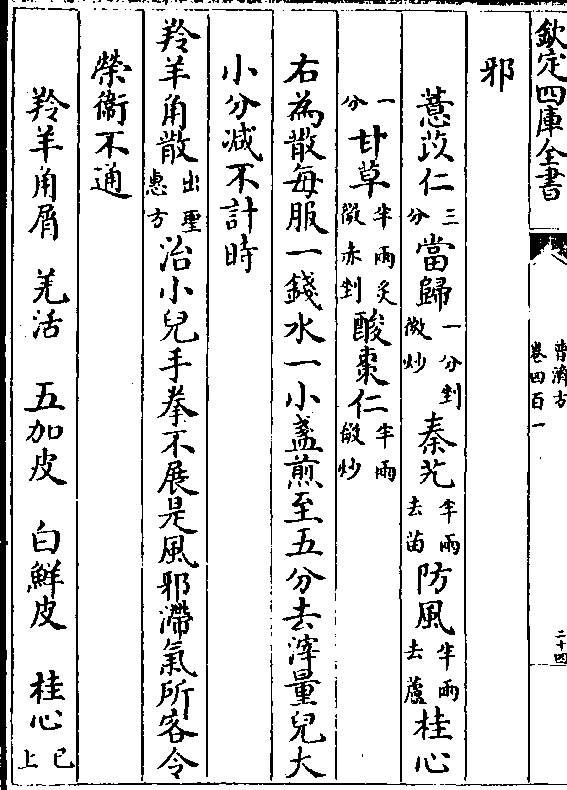 欽定四庫全書
普濟方
卷四百一
二十四
邪
薏苡仁三分當歸一分剉微炒秦艽半兩去苗防風半兩去蘆桂心
一分甘草半兩炙微赤剉酸棗仁半兩微炒
右為散每服一錢水一小盞煎至五分去滓量兒大
小分減不計時
羚羊角散出聖惠方治小兒手拳不展是風邪滯氣所客令
榮衞不通
羚羊角屑 羌活 五加皮 白鮮皮 桂心已上